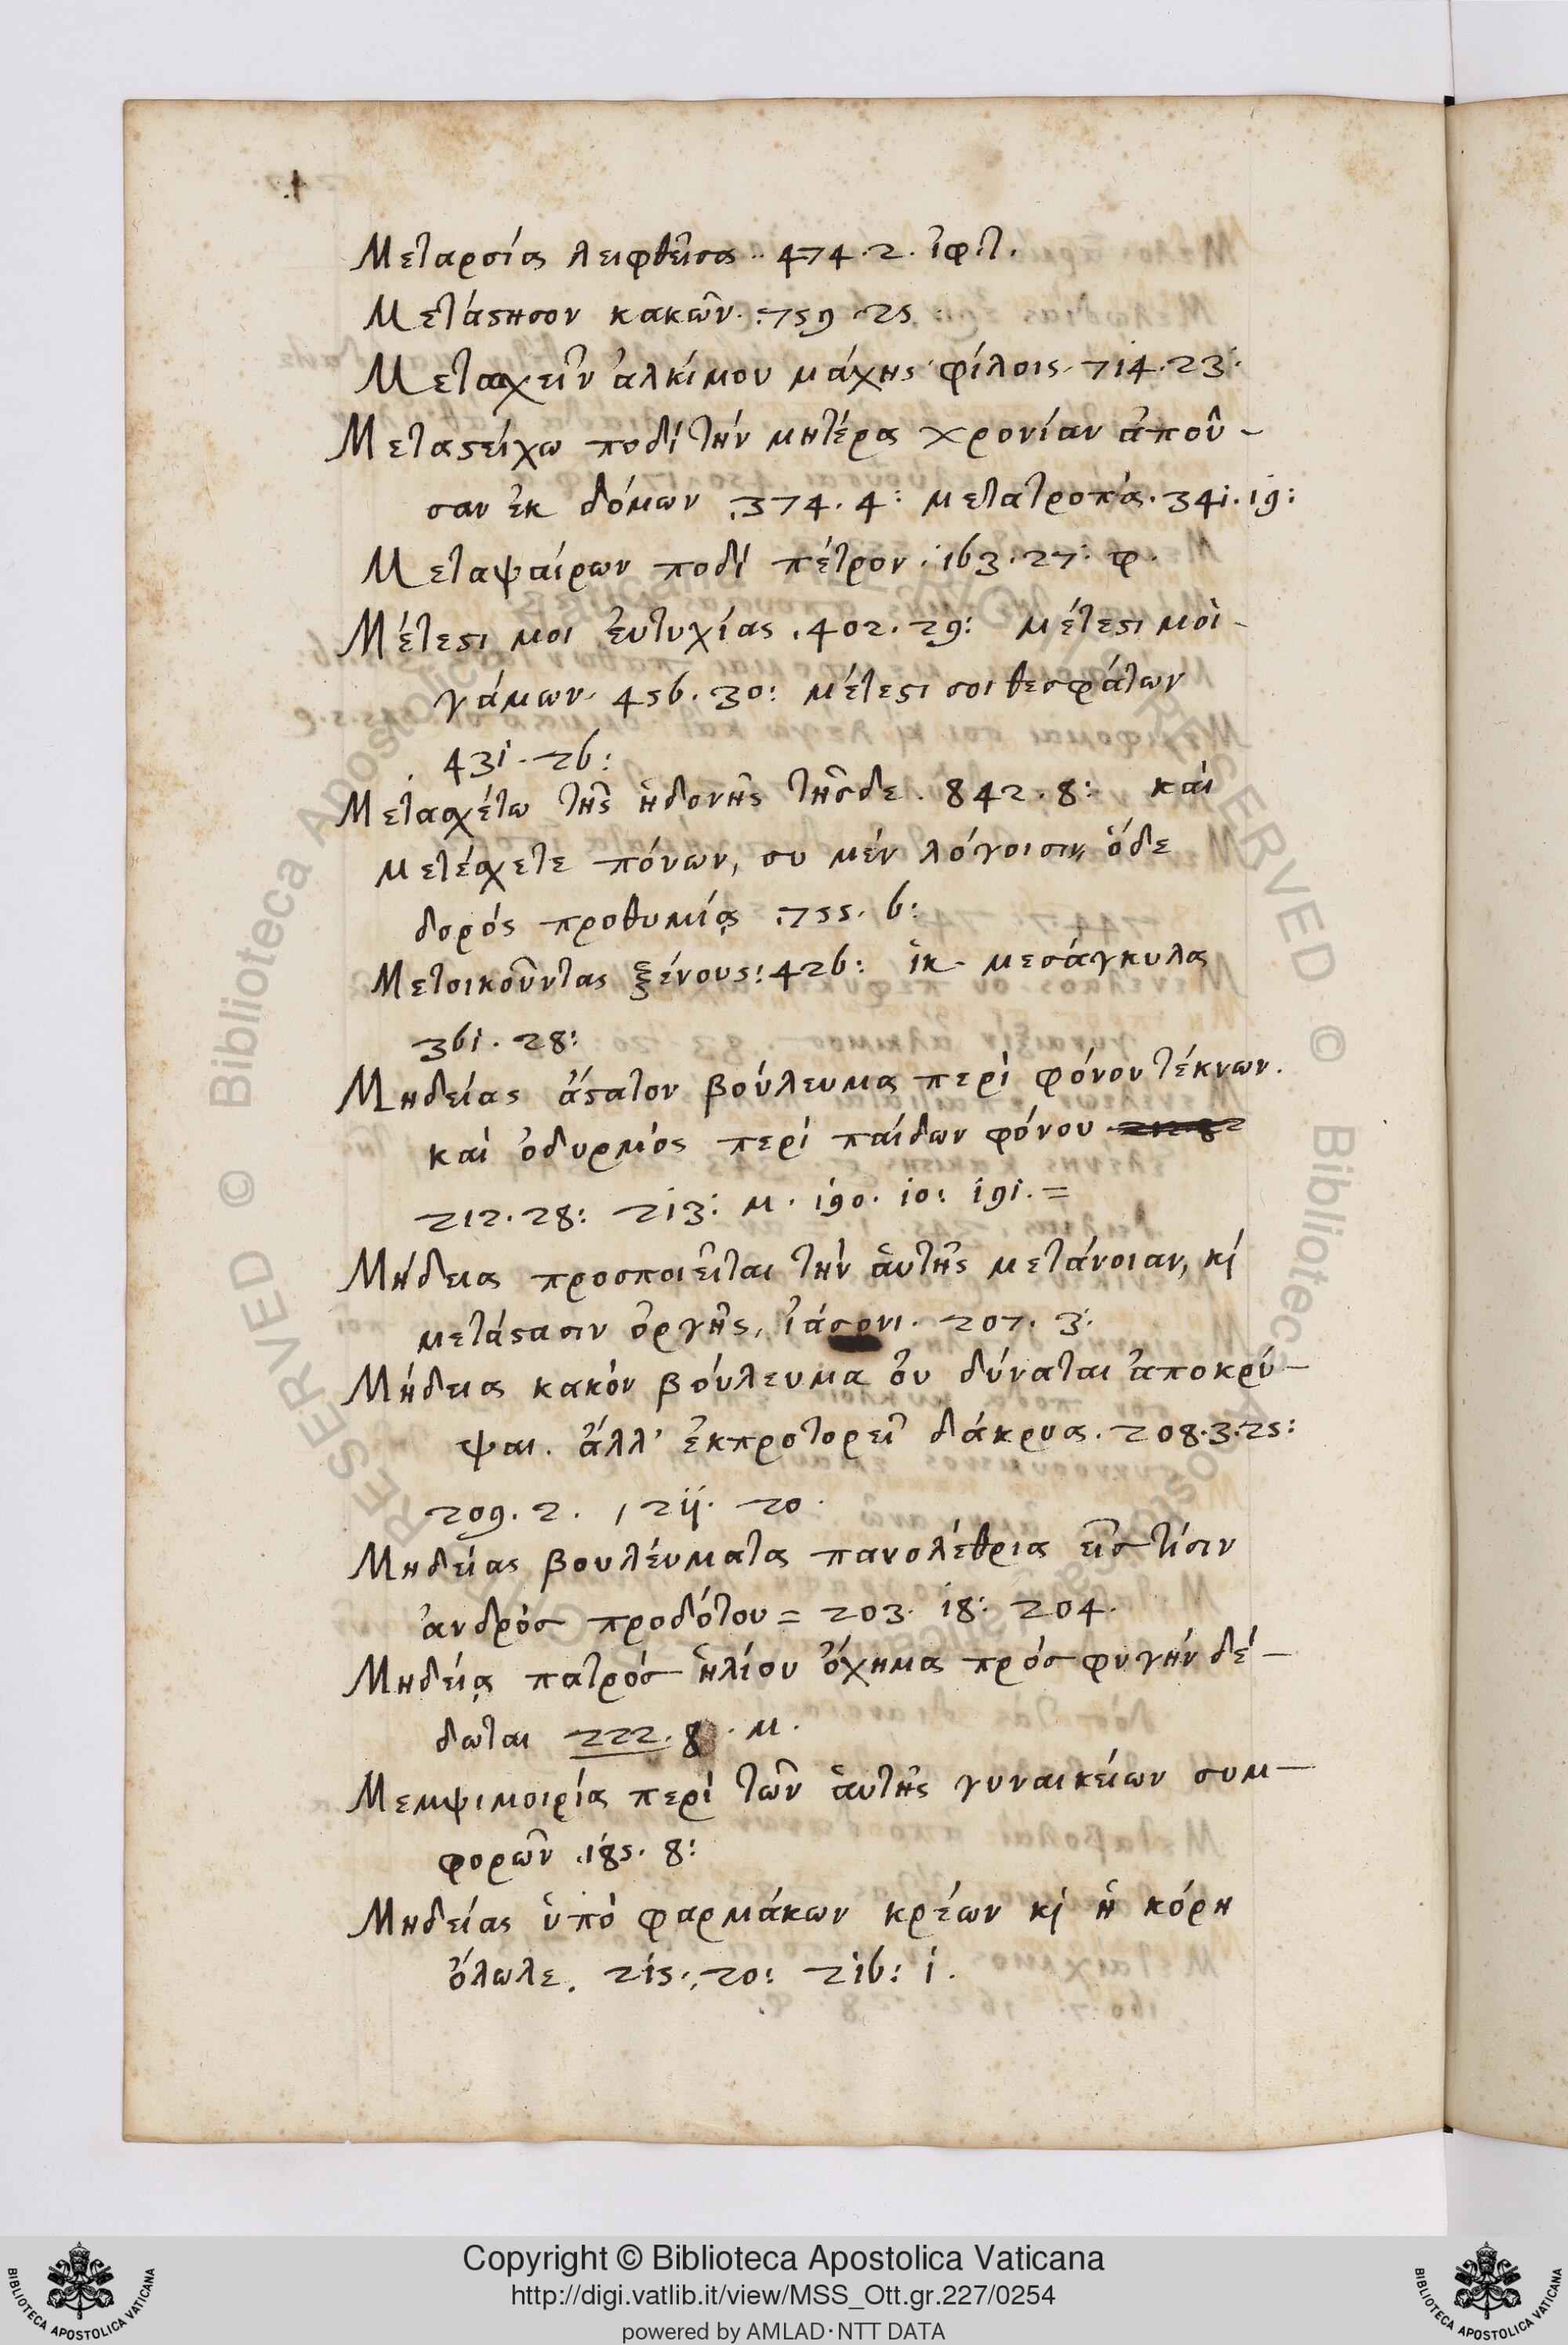 Μεταρσίας λειφθεῖσα·· 474·2. ἰφιτ.
Μετάςησον κακῶν· :759·25
Μετασχεῖν ἀλκίμου μάχης φίλοις· 714·23·
Μεταςείχω ποδί τήν μητέρα χρονίαν ἀποῦ-
σαν ἐκ δόμων .374·4: μετατροπά·341·19:
Μεταψαίρων ποδί πέτρον·163·27· φ.
Μέτεςι μοι ἐυτυχίας .402·29: μέτεςι μοὶ-
γάμων· 456·30: μέτεςι σοι θεσφάτων
431·26:
Μετασχέτω τῆς ἡδονῆς τῆσδε. 842·8: καὶ
μετέσχετε πόνων, συ μέν λόγοισιν, ὅδε
δορός προθυμίᾳ .755·6:
Μετοικοῦντας ξένους:426: ἱκ- μεσάγκυλα
361·28:
Μηδείας ἄςατον βούλευμα περὶ φόνου τέκνων.
καὶ ὀδυρμός περὶ παίδων φόνου
212·28: 213: μ· 190·10: 191·=
Μήδεια προσποιεῖται τὴν ἁυτῆς μετάνοιαν, κἰ
μετάςασιν ὀργῆς, ἰάσονι· 207· 3·
Μήδεια κακόν βούλευμα ὀυ δύναται ἀποκρύ-
ψαι. ἀλλ' ἐκπροτορεῖ δάκρυα. 208·3·25:
209·2. , 211· 20·
Μηδείας βουλέυματα πανολέθρια εἰς τίσιν
ἀνδρός προδότου = 203· 18: 204·
Μηδείᾳ πατρός ἡλίου ὄχημα πρός φυγήν δέ-
δωται 222·8·μ·
Μεμψιμοιρία περὶ τῶν ἁυτῆς γυναικείων συμ-
φορῶν .185·8:
Μηδείας ὑπό φαρμάκων κρέων κἰ ἡ κόρη
ὄλωλε. 215·,20: 216: 1.
Copyright © Biblioteca Apostolica Vaticana
http://digi.vatlib.it/view/MSS_Ott.gr.227/0254
powered by AMLAD·NTT DATA